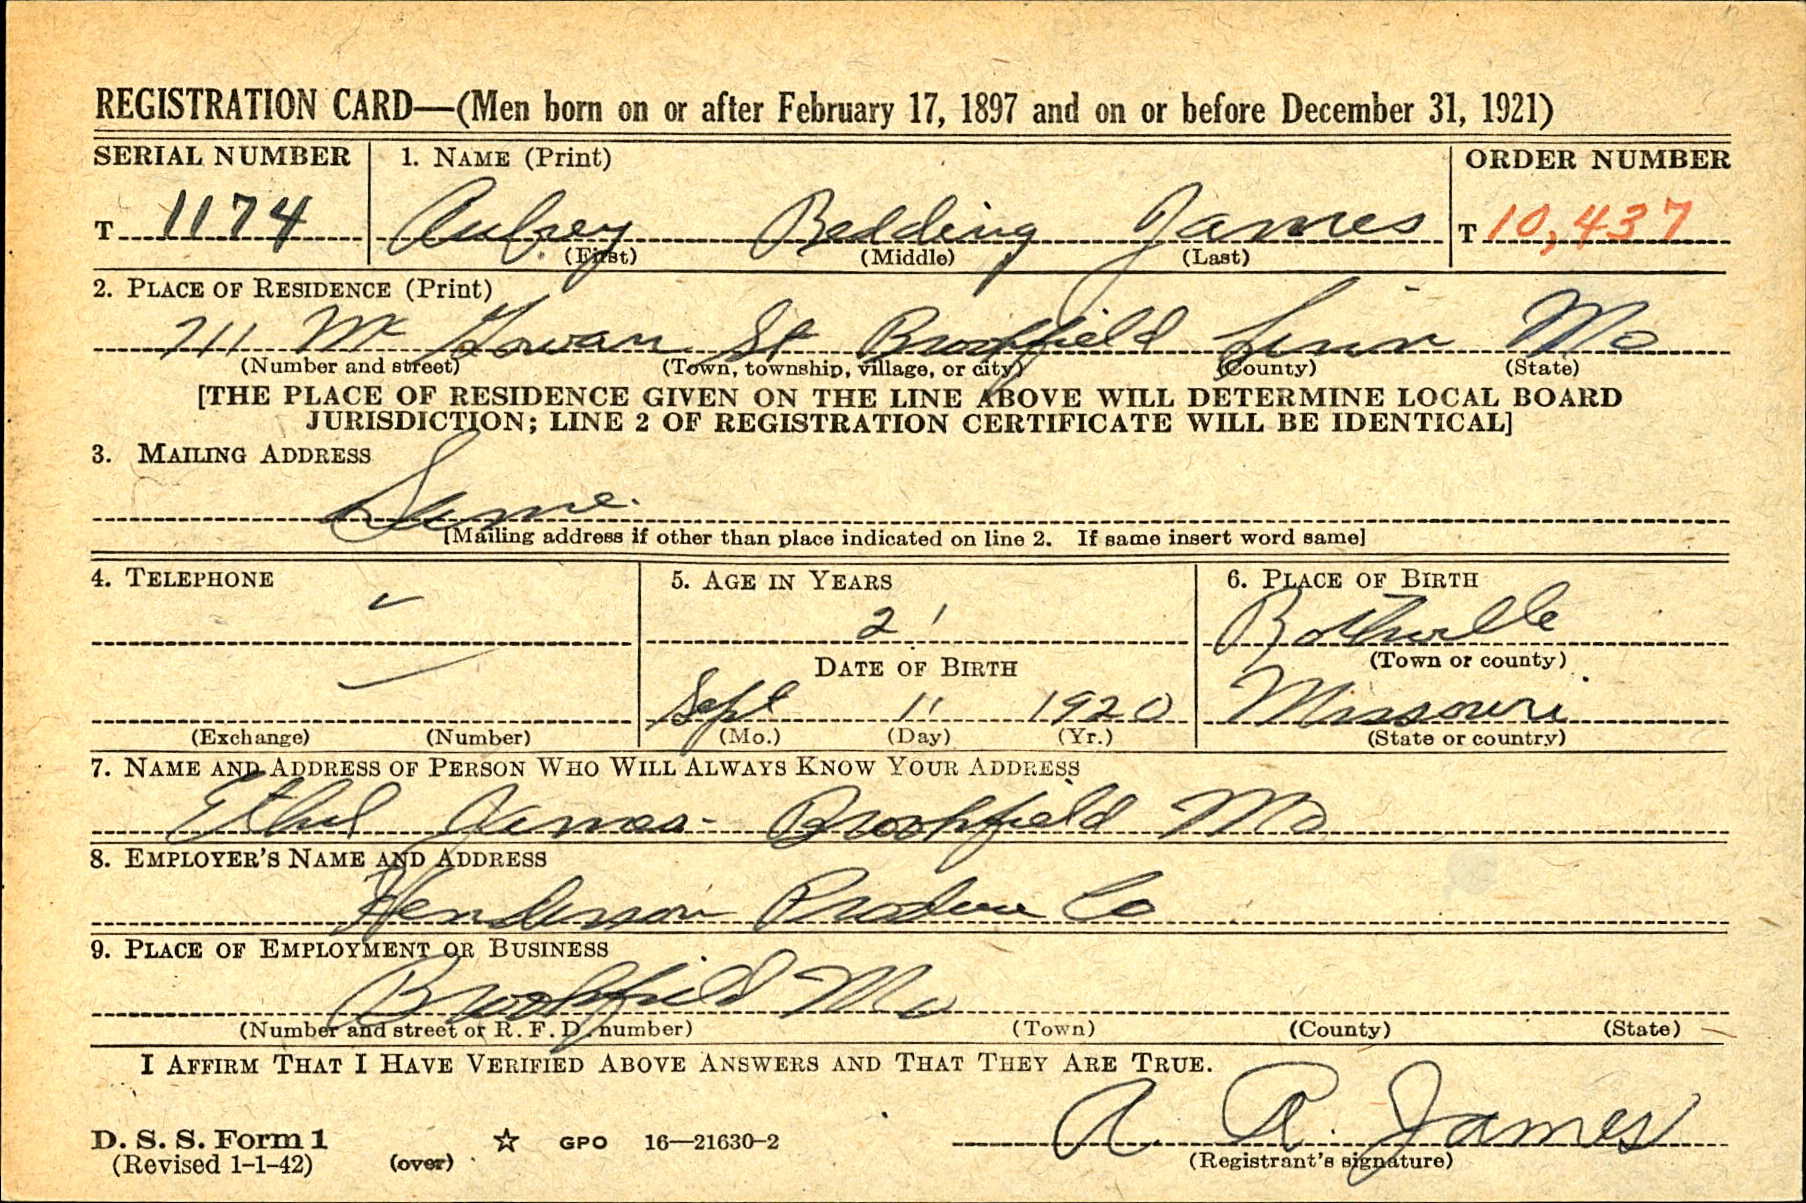 REGISTRATION CARD—(Men born on or after February 17, 1897 and on or before December 31, 1921)
SERIAL NUMBER 1. NAME (Print) ORDER NUMBER
T 1174 Aubrey Redding James T 10,437
(First) (Middle) (Last)
2. PLACE OF RESIDENCE (Print)
711 Mc Gowan St Brookfield Linn Mo
(Number and street) (Town, township, village, or city) (County) (State)
[THE PLACE OF RESIDENCE GIVEN ON THE LINE ABOVE WILL DETERMINE LOCAL BOARD
JURISDICTION; LINE 2 OF REGISTRATION CERTIFICATE WILL BE IDENTICAL]
3. MAILING ADDRESS
Same.
[Mailing address if other than place indicated on line 2. If same insert word same]
4. TELEPHONE 5. AGE IN YEARS 6. PLACE OF BIRTH
21 Rothville
DATE OF BIRTH (Town or county)
Sept 11 1920 Missouri
(Exchange) (Number) (Mo.) (Day) (Yr.) (State or country)
7. NAME AND ADDRESS OF PERSON WHO WILL ALWAYS KNOW YOUR ADDRESS
Ethel James - Brookfield Mo
8. EMPLOYER'S NAME AND ADDRESS
Henderson Produce Co
9. PLACE OF EMPLOYMENT OR BUSINESS
Brookfield Mo
(Number and street or R. F. D. number) (Town) (County) (State)
I AFFIRM THAT I HAVE VERIFIED ABOVE ANSWERS AND THAT THEY ARE TRUE.
D. S. S. Form 1 GPO 16—21630-2 A. R. James
(Revised 1-1-42) (over) (Registrant's signature)